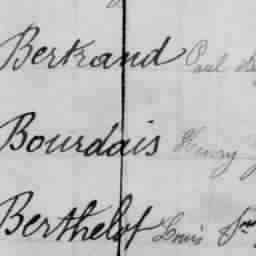 Bertrand Paul
Bourdais Henry
Berthelot Louis